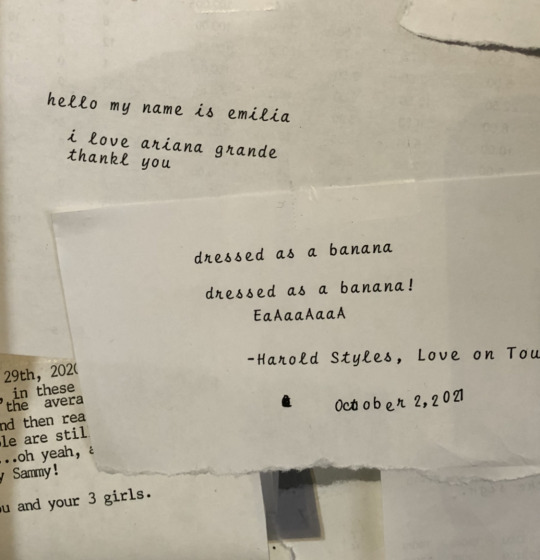 hello my name is emilia
i love ariana grande
thankl you
dressed as a banana
dressed as a banana!
EaAaaAaaA
-Harold Styles, Love on Tou
October 2, 2021
29th, 202
in these
the avera
nd then rea
le are stil
...oh yeah,
y Sammy!
u and your 3 girls.